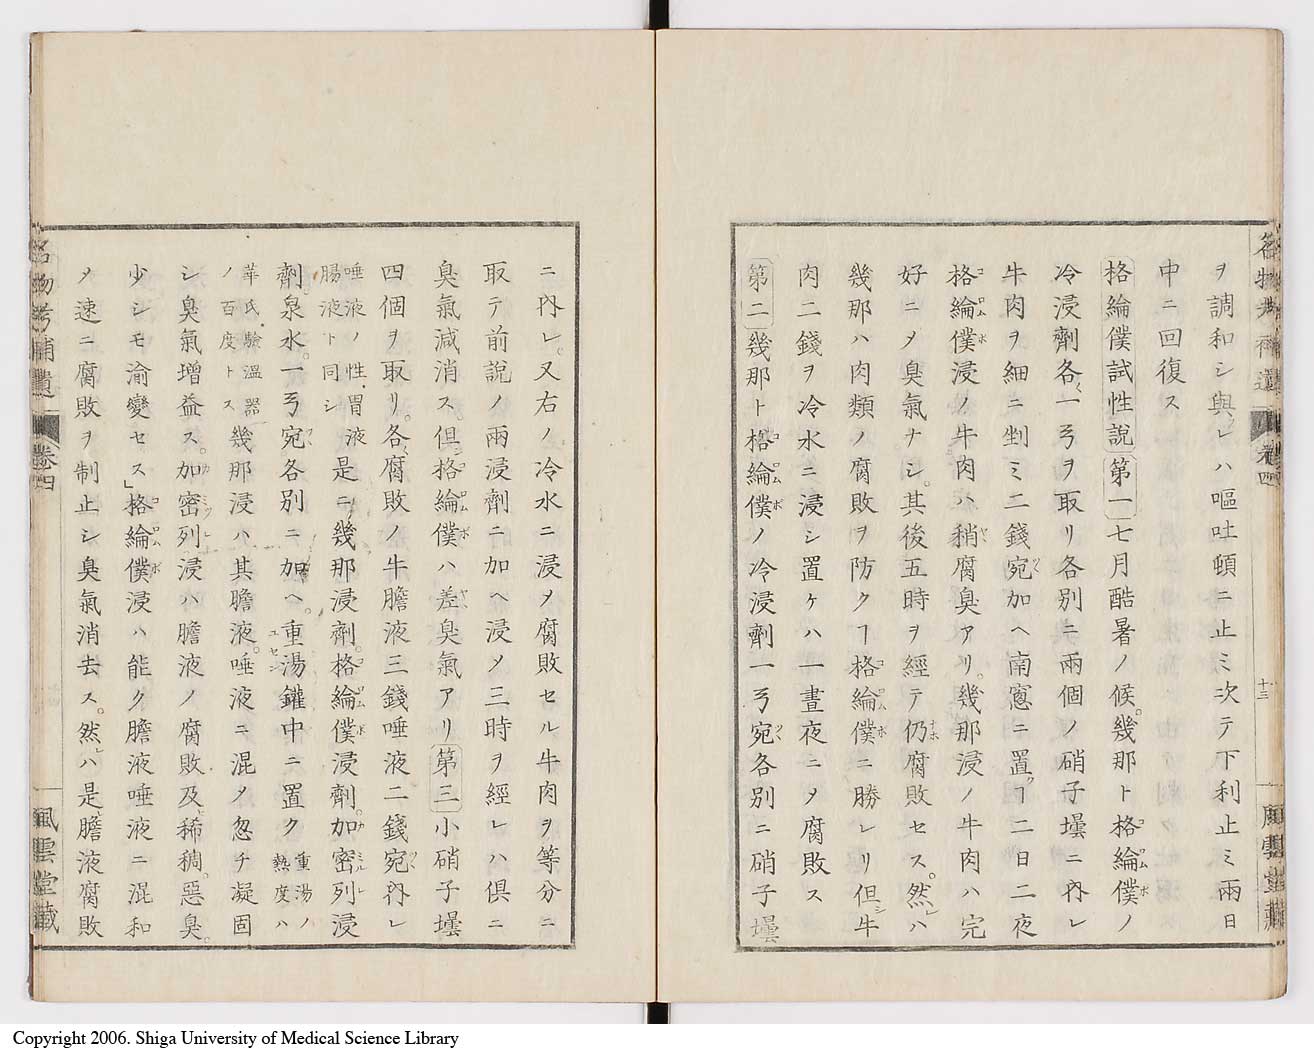 ヲ調和シ與レハ嘔吐頓ニ止ミ次テ下利止ミ兩日
中ニ回復ス
格綸僕試性說 第一 七月酷暑ノ候。幾那ト格綸僕ノ
冷浸劑各一弓ヲ取リ各別ニ兩個ノ硝子壜ニ內レ
牛肉ヲ細ニ剉ミ二錢宛加ヘ南窓ニ置ヿ二日二夜
格綸僕浸ノ牛肉ハ稍腐臭アリ。幾那浸ノ牛肉ハ完
好ニメ臭氣ナシ。其後五時ヲ經テ仍腐敗セス。然レハ
幾那ハ肉類ノ腐敗ヲ防クヿ格綸僕ニ勝レリ但シ牛
肉二錢ヲ冷水ニ浸シ置ケハ一晝夜ニメ腐敗ス
第二 幾那ト格綸僕ノ冷浸劑一弓宛各別ニ硝子壜
名物考補遺 卷四 十三 風雲堂藏
ニ內レ。又右ノ冷水ニ浸メ腐敗セル牛肉ヲ等分ニ
取テ前說ノ兩浸劑ニ加ヘ浸メ三時ヲ經レハ俱ニ
臭氣減消ス。但格綸僕ハ差臭氣アリ 第三 小硝子壜
四個ヲ取リ。各腐敗ノ牛膽液三錢唾液二錢宛內レ
唾液ノ性胃液
腸液ト同シ
是ニ幾那浸劑。格綸僕浸劑。加密列浸
劑泉水。一弓宛各別ニ加ヘ。重湯鑵中ニ置ク
重湯ノ
熱度ハ
華氏驗溫器
ノ百度トス
幾那浸ハ其膽液。唾液ニ混メ忽チ凝固
シ臭氣增益ス。加密列浸ハ膽液ノ腐敗及稀稠。惡臭。
少シモ渝變セス」格綸僕浸ハ能ク膽液唾液ニ混和
メ速ニ腐敗ヲ制止シ臭氣消去ス。然レハ是膽液腐敗
名物考補遺 卷四 風雲堂藏
Copyright 2006. Shiga University of Medical Science Library